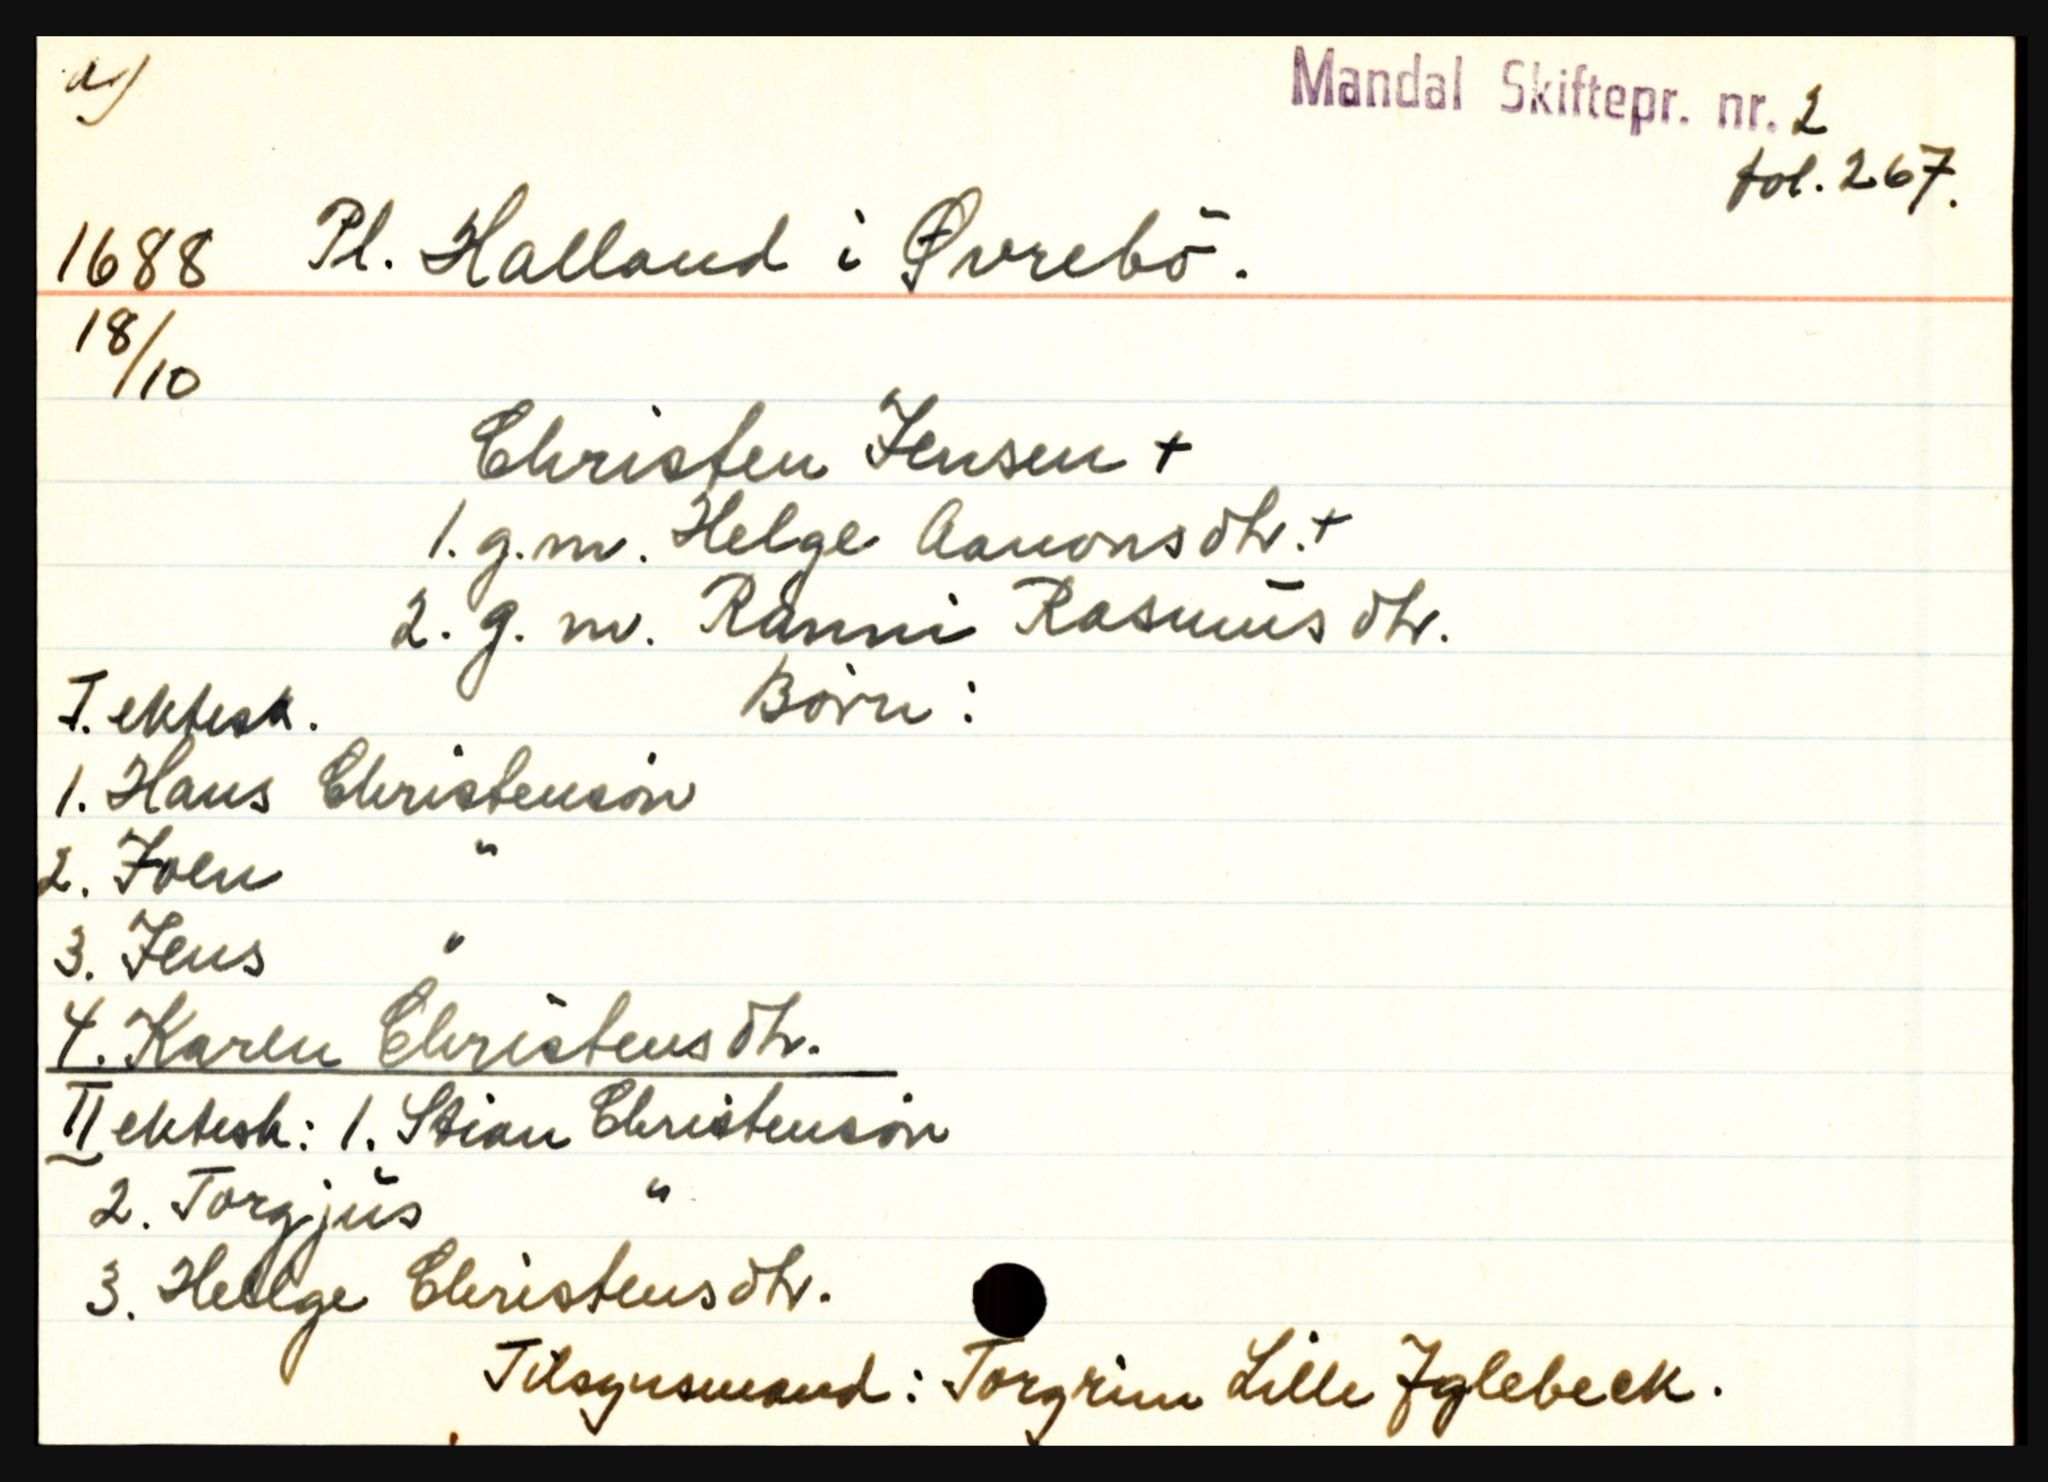 a)
Mandal Skiftepr. nr. 2
fol. 267.
1688 Pl. Halland i Øvrebö.
18/10
Christen Jensen +
1. g.m. Helge Aanonsdtr. +
2. g.m. Ranni Rasmusdtr.
I. ektesk. Börn :
1. Hans Christensön
2. Joen "
3. Jens "
4. Karen Christensdtr.
II ektesk: 1. Stian Christensön
2. Torgjus "
3. Hellge Christensdtr.
Tilsynsmand : Torgrim Lille Iglebeck.